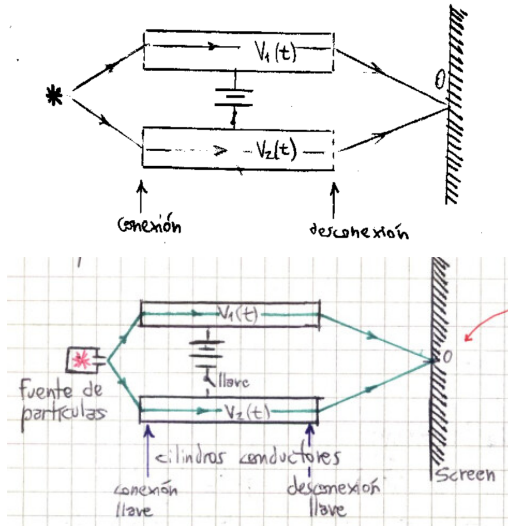 V₁(t)
O
V₂(t)
conexión
desconexión
V₁(t)
llave
O
Fuente de
partículas
V₂(t)
cilindros conductores
conexión
llave
desconexión
llave
Screen